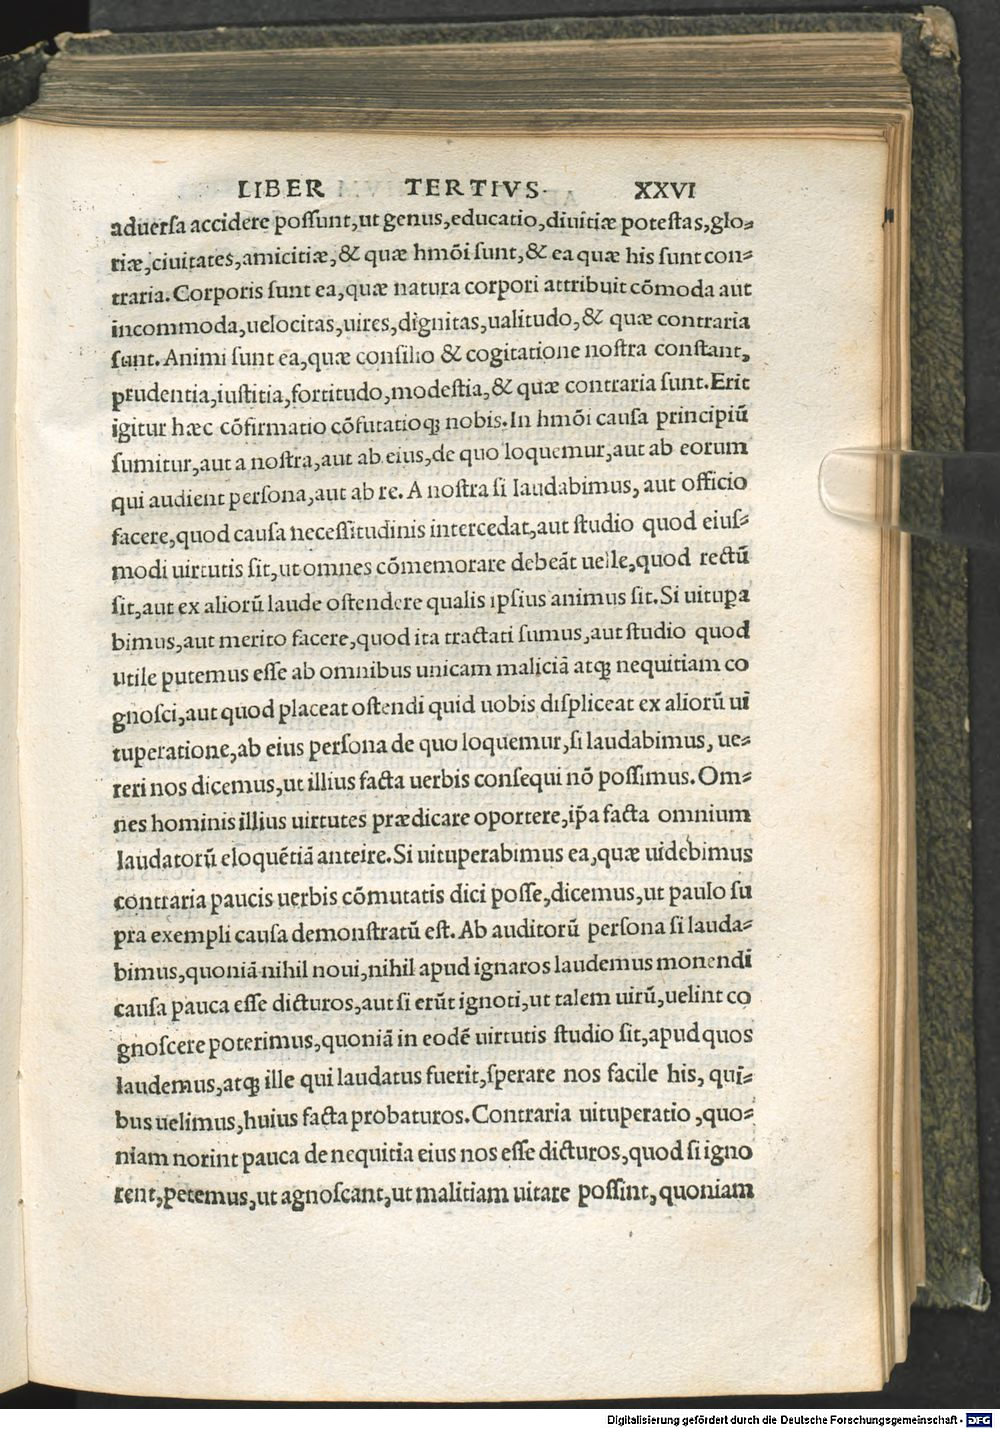 LIBER TERTIVS. XXVI
aduersa accidere possunt,ut genus,educatio,diuitiæ potestas,glo⸗
riæ,ciuitates,amicitiæ,& quæ hmõi sunt,& ea quæ his sunt con⸗
traria. Corporis sunt ea,quæ natura corpori attribuit cõmoda aut
incommoda,uelocitas,uires,dignitas,ualitudo,& quæ contraria
sunt. Animi sunt ea,quæ consilio & cogitatione nostra constant,
prudentia,iustitia,fortitudo,modestia,& quæ contraria sunt. Erit
igitur hæc cõfirmatio cõfutatioqꝫ nobis. In hmõi causa principiũ
sumitur,aut a nostra,aut ab eius,de quo loquemur,aut ab eorum
qui audient persona,aut ab re. A nostra si laudabimus, aut officio
facere,quod causa necessitudinis intercedat,aut studio quod eius⸗
modi uirtutis sit,ut omnes cõmemorare debeãt uelle,quod rectũ
sit,aut ex aliorũ laude ostendere qualis ipsius animus sit. Si uitupa
bimus,aut merito facere,quod ita tractati sumus,aut studio quod
utile putemus esse ab omnibus unicam maliciã atqꝫ nequitiam co
gnosci,aut quod placeat ostendi quid uobis displiceat ex aliorũ ui
tuperatione,ab eius persona de quo loquemur,si laudabimus, ue⸗
reri nos dicemus,ut illius facta uerbis consequi nõ possimus. Om⸗
nes hominis illius uirtutes prædicare oportere,ip̃a facta omnium
laudatorũ eloquẽtiã anteire. Si uituperabimus ea,quæ uidebimus
contraria paucis uerbis cõmutatis dici posse,dicemus,ut paulo su
pra exempli causa demonstratũ est. Ab auditorũ persona si lauda⸗
bimus,quoniã nihil noui,nihil apud ignaros laudemus monendi
causa pauca esse dicturos,aut si erũt ignoti,ut talem uirũ,uelint co
gnoscere poterimus,quoniã in eodẽ uirtutis studio sit,apud quos
laudemus,atqꝫ ille qui laudatus fuerit,sperare nos facile his, qui⸗
bus uelimus,huius facta probaturos. Contraria uituperatio ,quo⸗
niam norint pauca de nequitia eius nos esse dicturos,quod si igno
rent,petemus,ut agnoscant,ut malitiam uitare possint,quoniam
Digitalisierung gefördert durch die Deutsche Forschungsgemeinschaft - DFG